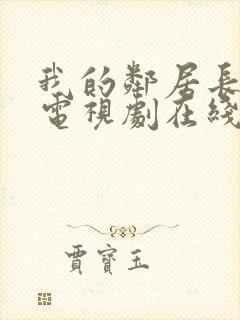 我的鄰居長
電視劇在綫
賈寶玉